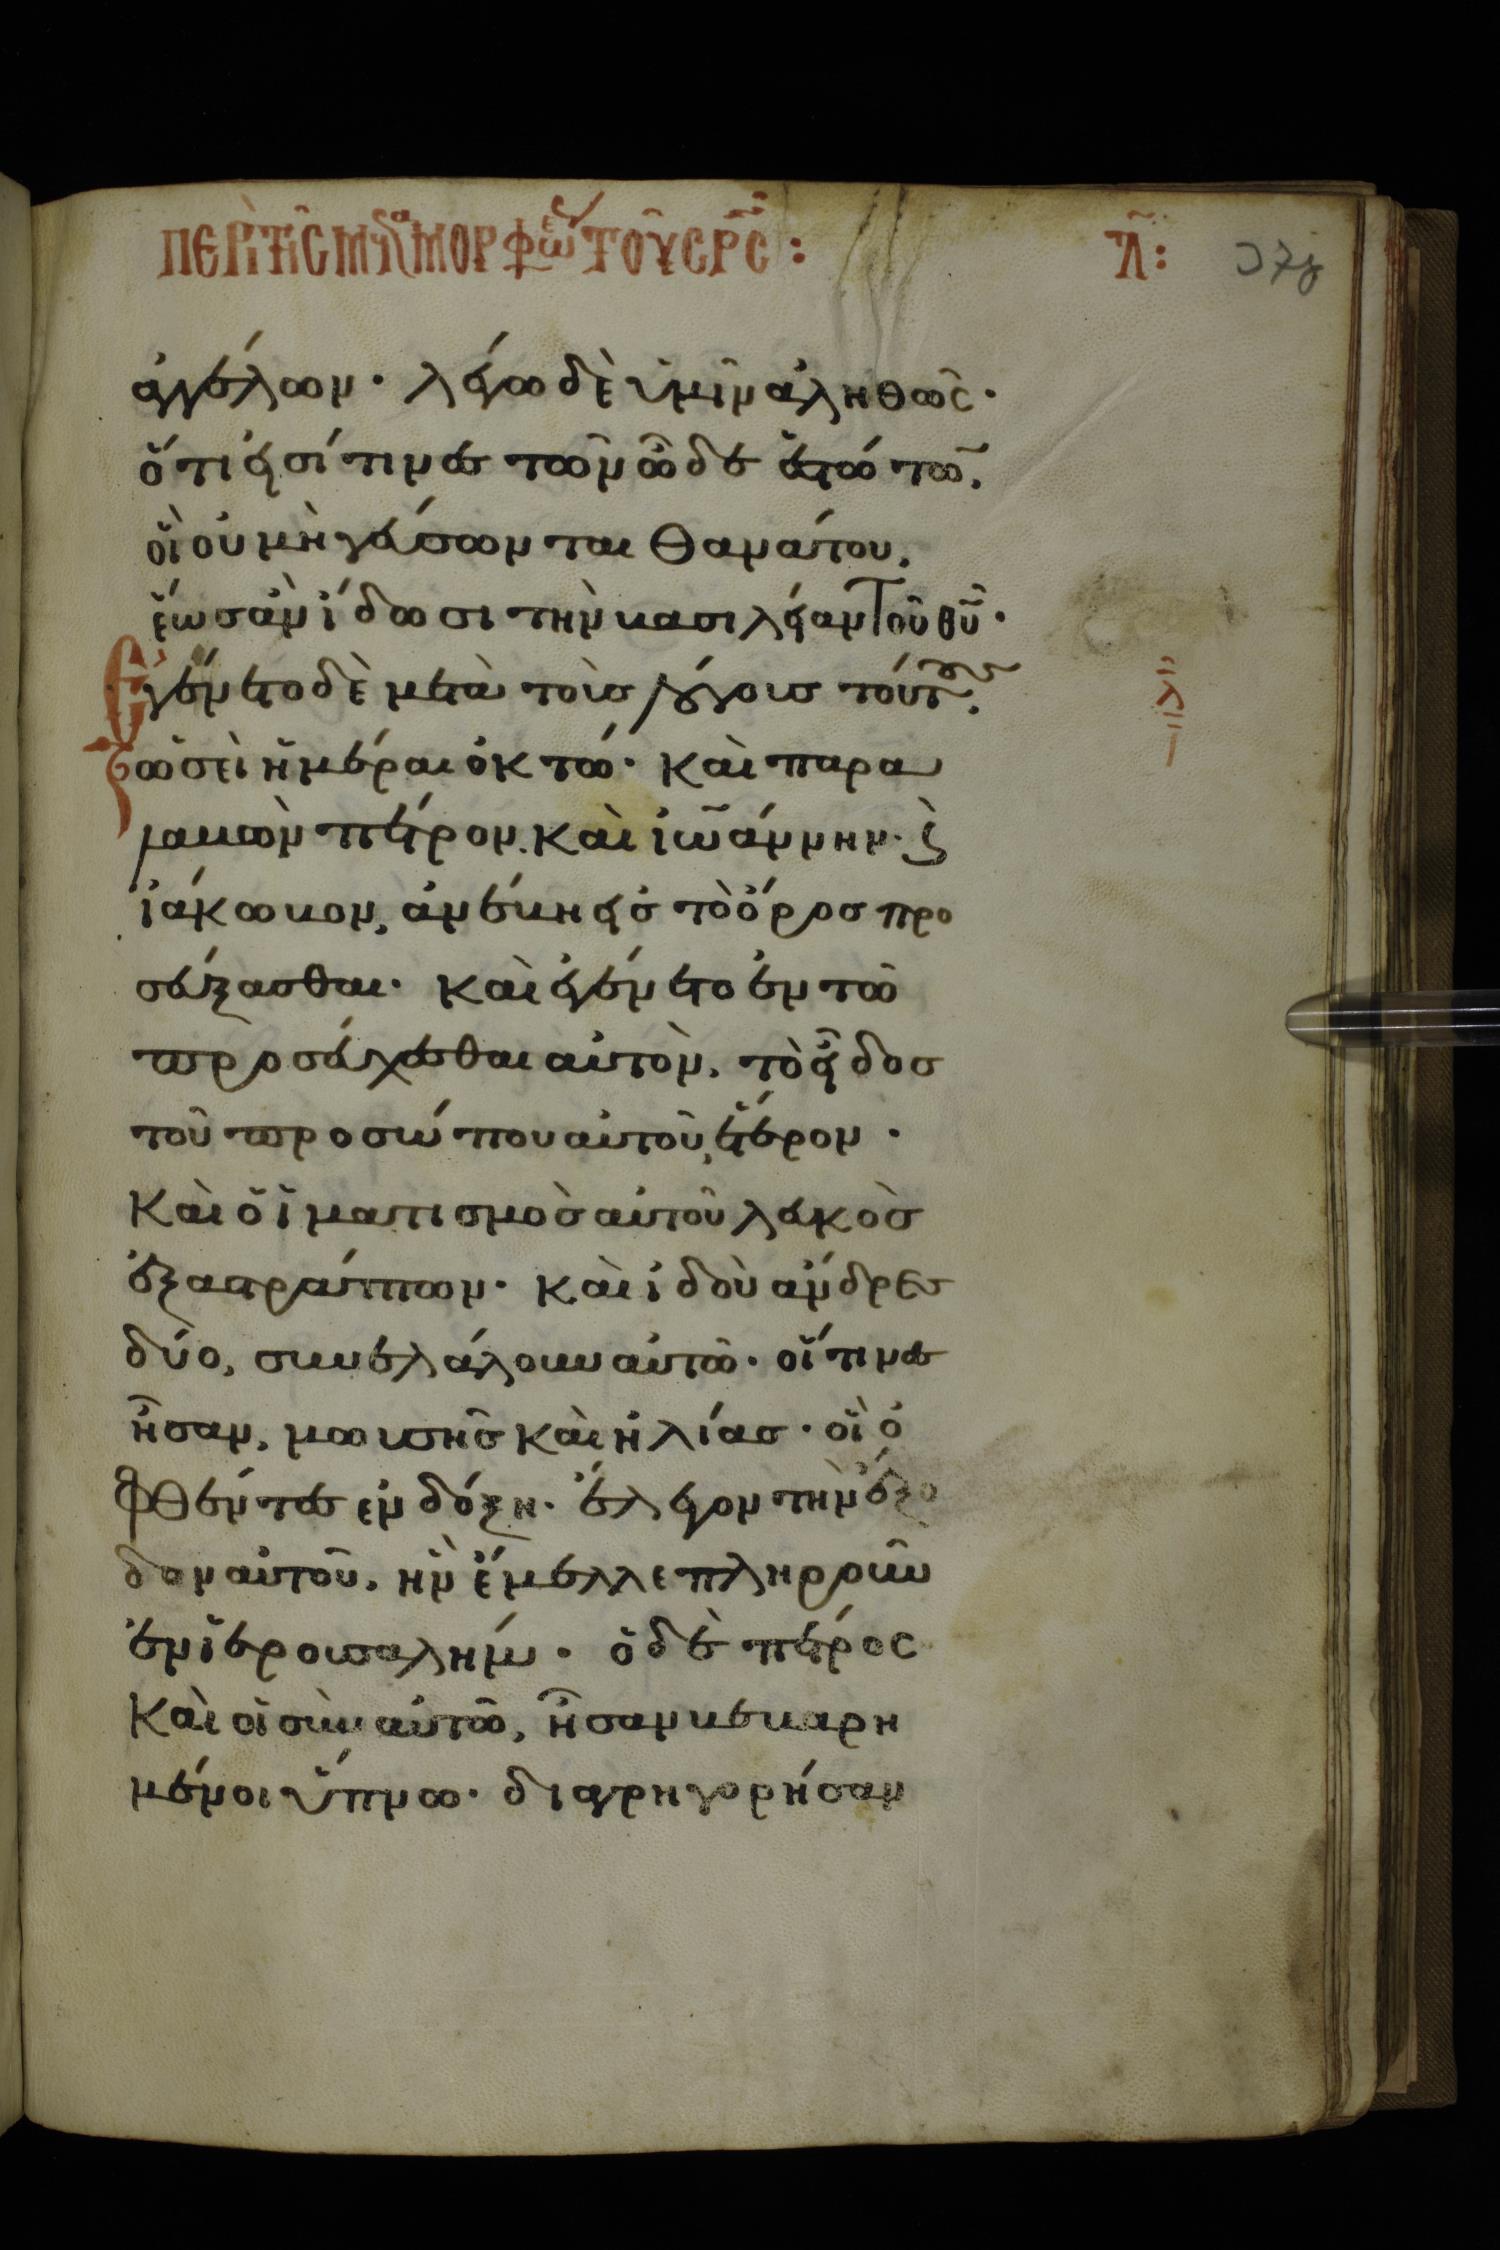 ΠΕΡῚ ΤΗ͂Σ ΜΕΤΑΜΟΡΦΏ ΤΟΥ͂ ΣΡΣ : Λ̅ :
ἀγγέλων· λέγω δὲ ὑμῖν ἀληθῶς·
ὅτι εἰσί τινες τῶν ὧδε ἑστώτω̅,
οἳ οὐ μὴ γεύσωνται θανάτου,
ἕως ἂν ἴδωσι τὴν βασιλείαν τοῦ θ̅υ̅·
Ἐγένετο δὲ μετὰ τοὺς λόγους τούτους,
ὡσεὶ ἡμέραι ὀκτώ· καὶ παρα
λαβὼν πέτρον. καὶ ἰωάννην· ϗ
ἰάκωβον, ἀνέβη εἰς τὸ ὄρος προ
σεύξασθαι· καὶ ἐγένετο ἐν τῶ
προσεύχεσθαι αὐτὸν, τὸ εἶδος
τοῦ προσώπου αὐτοῦ, ἕτερον·
Καὶ ὁ ἱματισμὸς αὐτοῦ λευκὸς
ἐξαστράπτων· καὶ ἰδοὺ ἄνδρες
δύο, συνελάλουν αὐτῶ· οἵτινες
ἦσαν, μωυσῆς καὶ ἠλίας· οἳ ὀ
φθέντες ἐν δόξη· ἔλεγον τὴν ἔξο
δον αὐτοῦ, ἣν ἔμελλε πληροῦν
ἐν ἱερουσαλήμ· ὁ δὲ πέτρος
Καὶ οἱ σὺν αὐτῶ, ἦσαν βεβαρη
μένοι ὕπνω· διαγρηγορήσαν